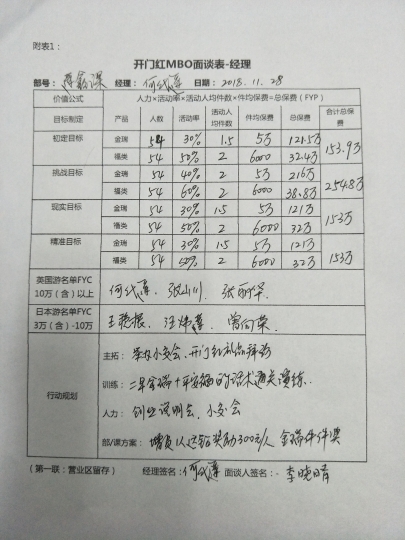 附表1：
开门红MBO面谈表-经理
部号： 经理：何代莲 日期：2018.11.28
价值公式 人力×活动率×活动人均件数×件均保费=总保费（FYP）
目标制定 产品 人数 活动率 活动人均件数 件均保费 总保费 合计总保费
初定目标 金瑞 54 30% 1.5 5万 121.5万 153.9万
福类 54 50% 2 6000 32.4万
挑战目标 金瑞 54 40% 2 5万 216万 254.8万
福类 54 60% 2 6000 38.8万
现实目标 金瑞 54 30% 1.5 5万 121万 153万
福类 54 50% 2 6000 32万
精准目标 金瑞 54 30% 1.5 5万 121万 153万
福类 54 50% 2 6000 32万
美国游名单FYC 10万（含）以上 何代莲、张山川、张丽华
日本游名单FYC 3万（含）-10万 王艳振、汪炜莲、曾向荣
行动规划
主拓： 小交会、开门红礼品拜访
训练： 话术通关演练
人力：创业说明会、小交会
部/课方案：增员 奖励300元/人 金瑞件件奖
（第一联：营业区留存） 经理签名：何代莲 面谈人签名：李晓晴